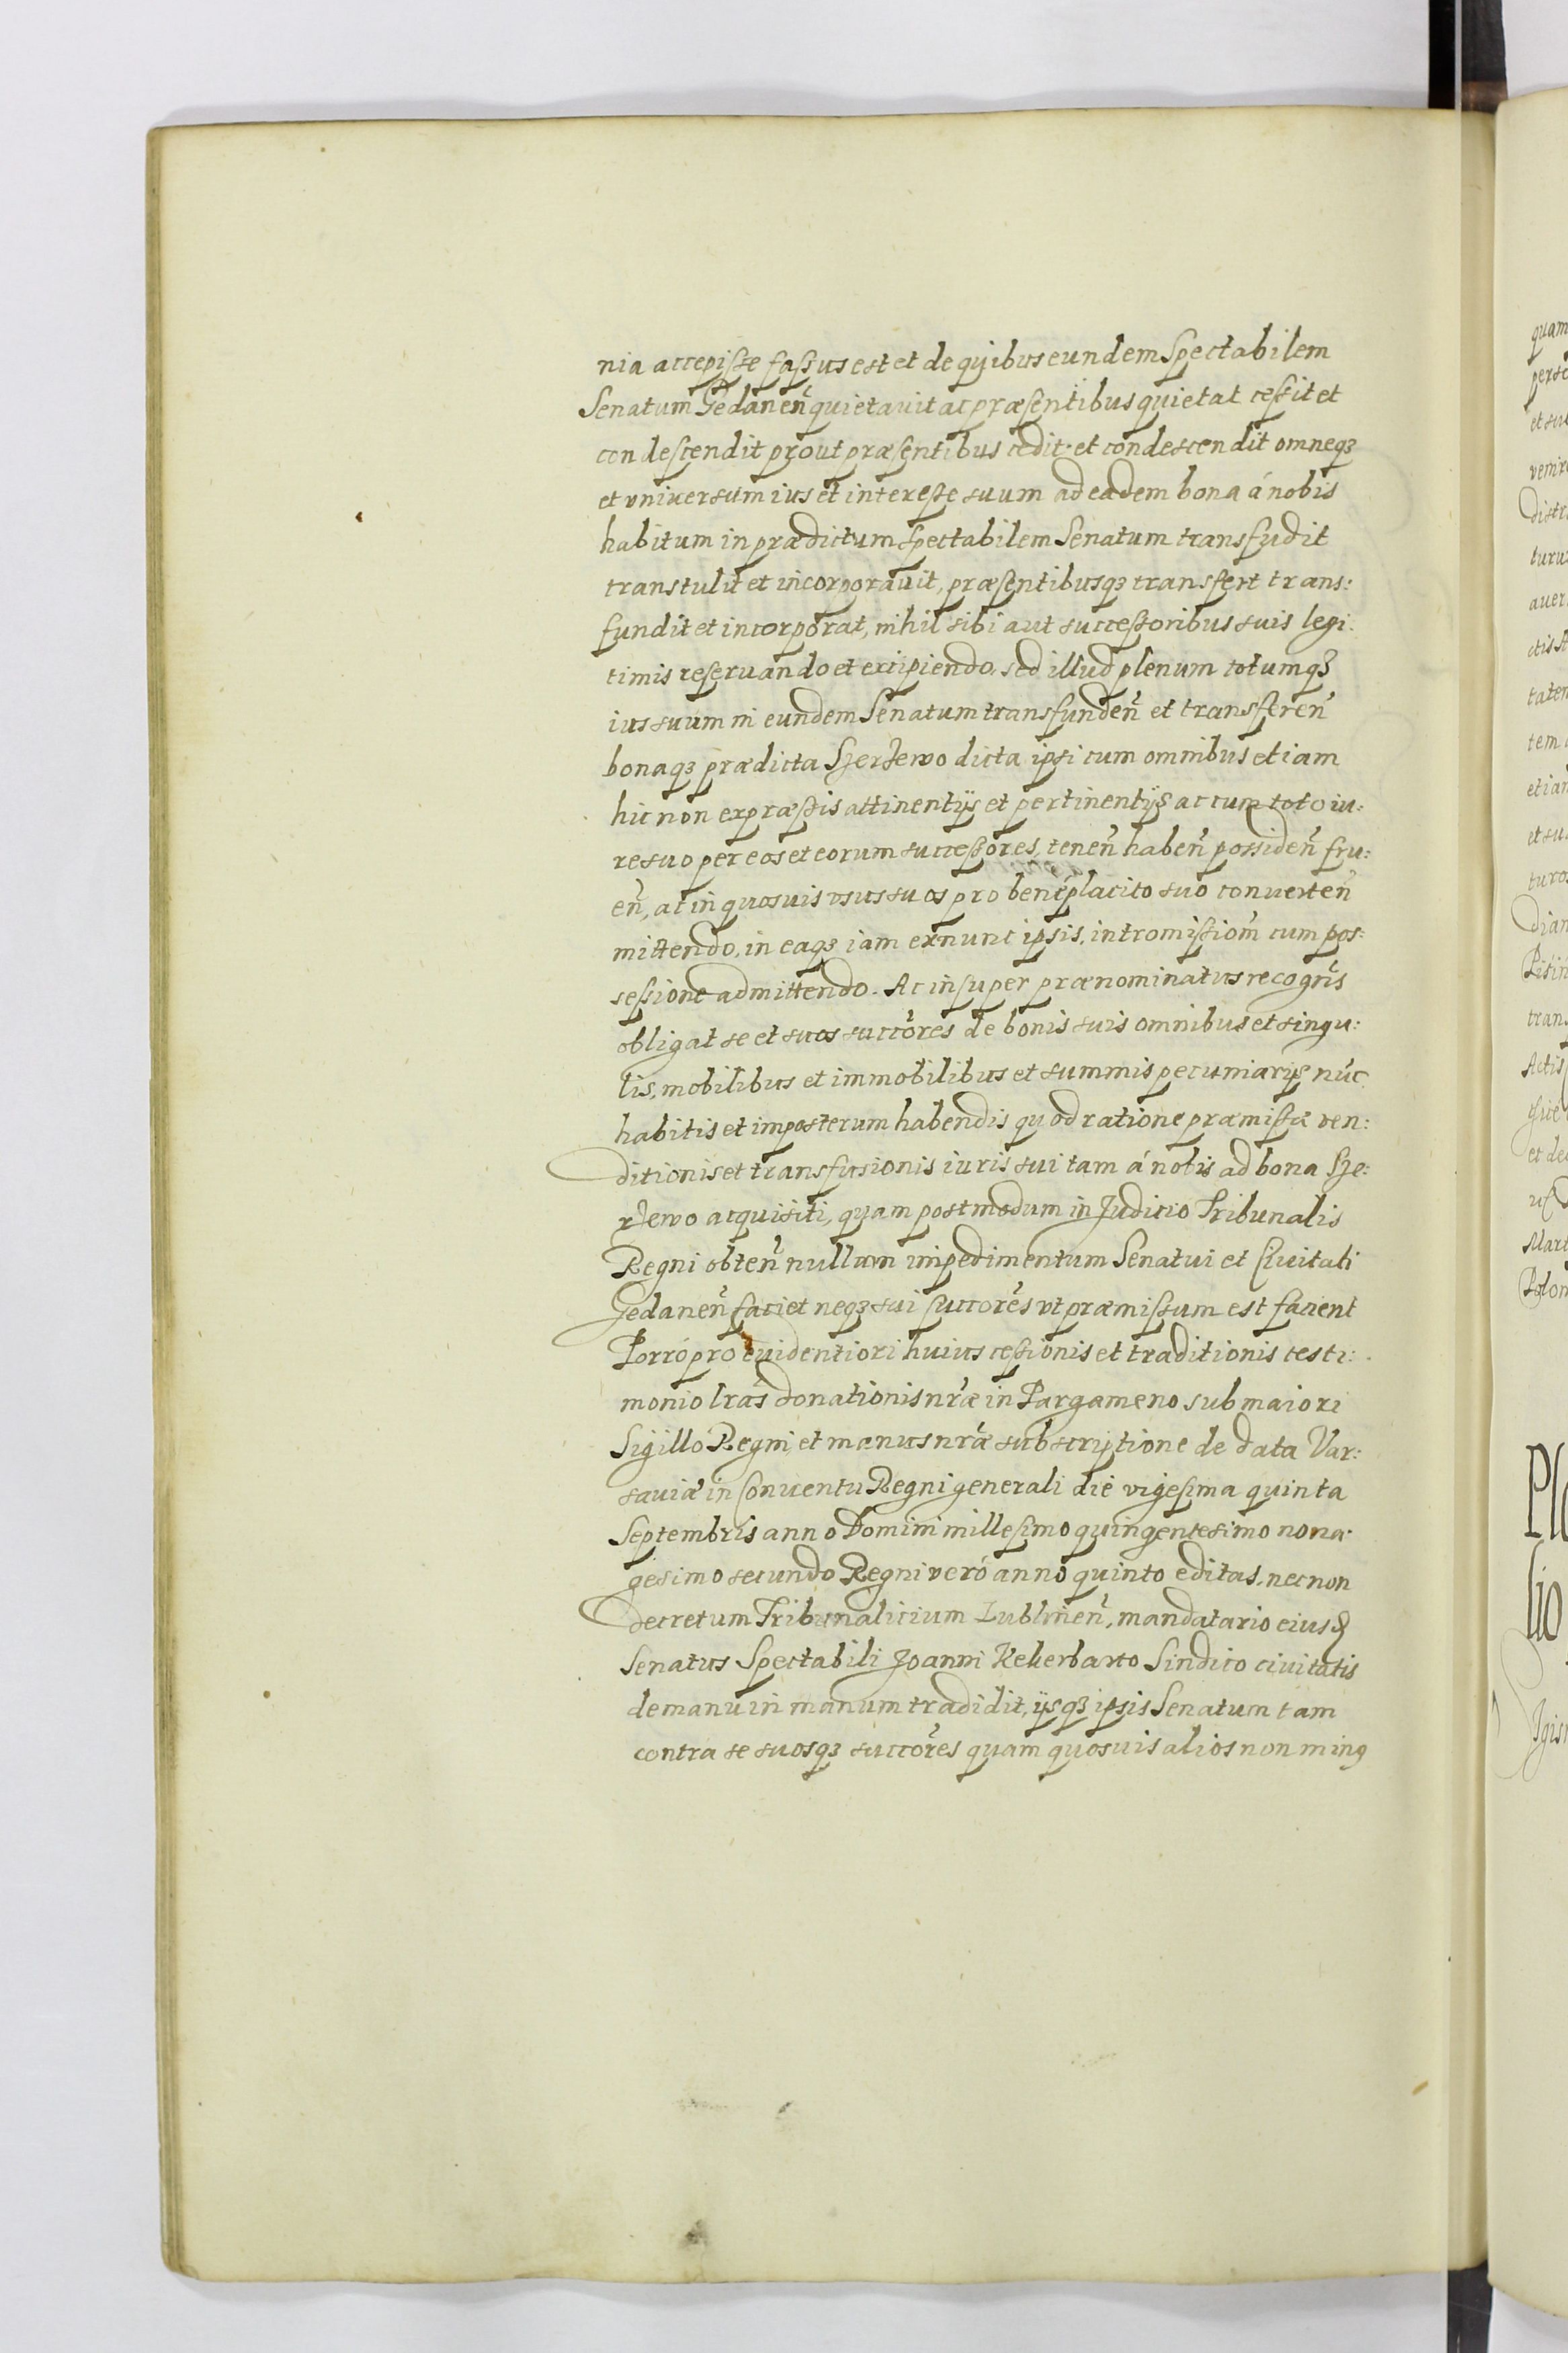 nia accepisse fassus est et de quibus eundem Spectabilem
Senatum Gedanen̄ quietavit ac præsentibus quietat cessit et
condescendit prout præsentibus cedit et condescendit omneqꝫ
et vniversum ius et interesse suum ad eadem bona á nobis
habitum in prædictum spectabilem Senatum transfudit
transtulit et incorporavit, præsentibusqꝫ transfert trans:
fundit et incorporat, nihil sibi aut successoribus suis legi:
timis reseruando et excipiendo, sed illud plenum totumqꝫ
ius suum in eundem Senatum transfunden̄ et transferen̄
bonaqꝫ prædicta dicta ipsi cum omnibus etiam
hic non expræssis attinentijs et pertinentijs ac cum toto iu:
re suo per eos et eorum successores, tenen̄ haben̄ possiden̄ fru:
en̄, ac in quosuis vsus suos pro beneplacito suo conuerten̄
mittendo, in eaqꝫ iam exnunc ipsis, intromissiom̄ cum pos:
sessione admittendo. Ac insuper prænominatus recogn̄s
obligat se et suos succōres de bonis suis omnibus et singu:
lis, mobilibus et immobilibus et summis pecuniarijs nūc
habitis et imposterum habendis quod ratione præmissæ ven:
ditionis et transfusionis iuris sui tam á nobis ad bona Sze:
rzewo acquisiti, quam postmodum in Judicio Tribunalis
Regni obten̄ nullum impedimentum Senatui et Ciuitati
Gedanen̄ faciet neqꝫ sui succorēs vt præmissum est facient
Porró pro euidentiori huius cessionis et traditionis testi:
monio lrās donationis nrǣ in Pargameno sub maiori
Sigilló Regni, et manus nrǣ subscriptione de data Var:
sauiæ in Conuentu Regni generali die vigesima quinta
Septembris anno Domini millesimo quingentesimo nona:
gesimo secundo Regni veró anno quinto editas, necnon
decretum Tribunalicium Lublinen̄, mandatario eiusd
Senatus Spectabili Joanni Kekerbarto Sindico ciuitatis
de manu in manum tradidit, ijsqꝫ ipsis Senatum tam
contra se suosqꝫ succōres quam quosuis alios non minꝯ